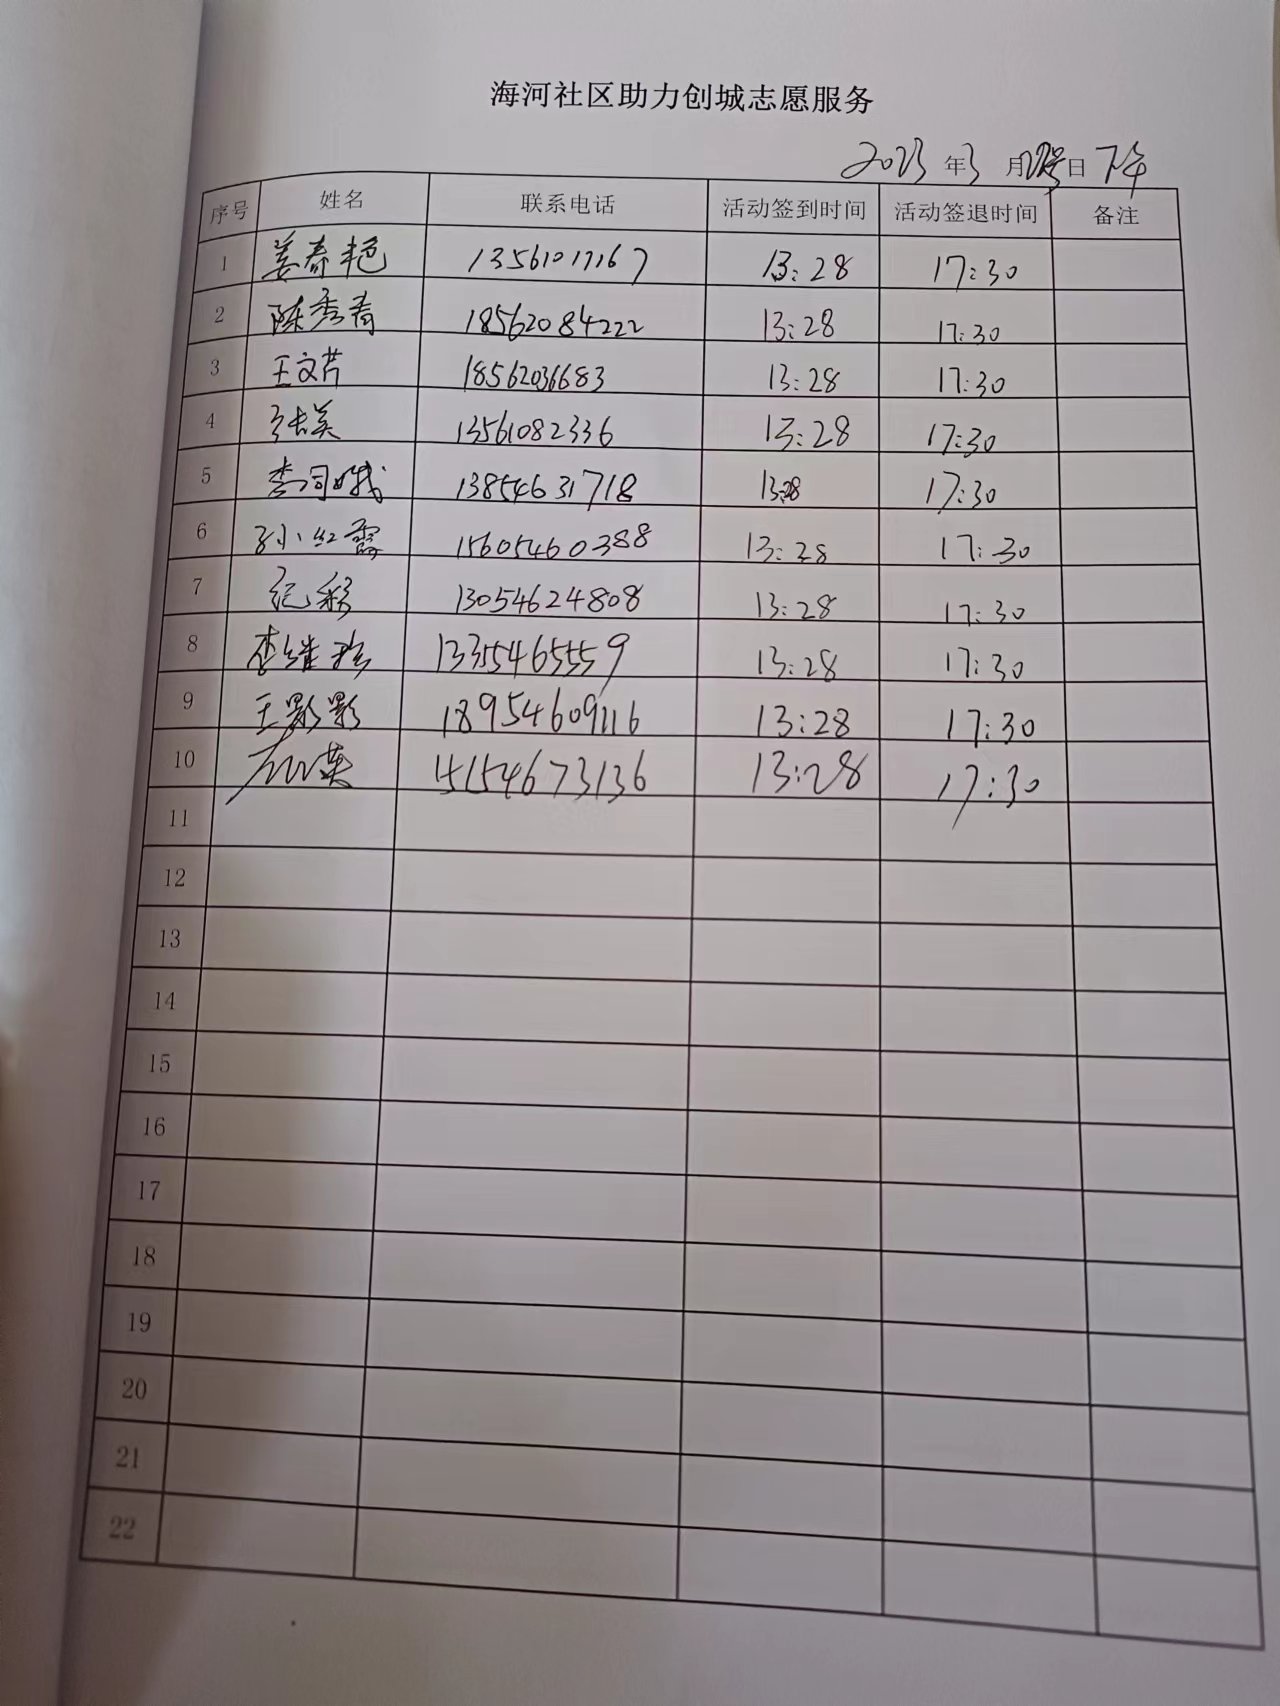 海河社区助力创城志愿服务
2023年3月日下午
序号 姓名 联系电话 活动签到时间 活动签退时间 备注
1 姜春艳 13561017167 13:28 17:30
2 陈秀青 18562084222 13:28 17:30
3 王文芹 18562036683 13:28 17:30
4 张英 13561082336 13:28 17:30
5 李同娥 13854631718 13:28 17:30
6 孙红霞 15605460388 13:28 17:30
7 纪彩 13054624808 13:28 17:30
8 李继珍 13355465559 13:28 17:30
9 王影影 18954609116 13:28 17:30
10 15154673136 13:28 17:30
11
12
13
14
15
16
17
18
19
20
21
22